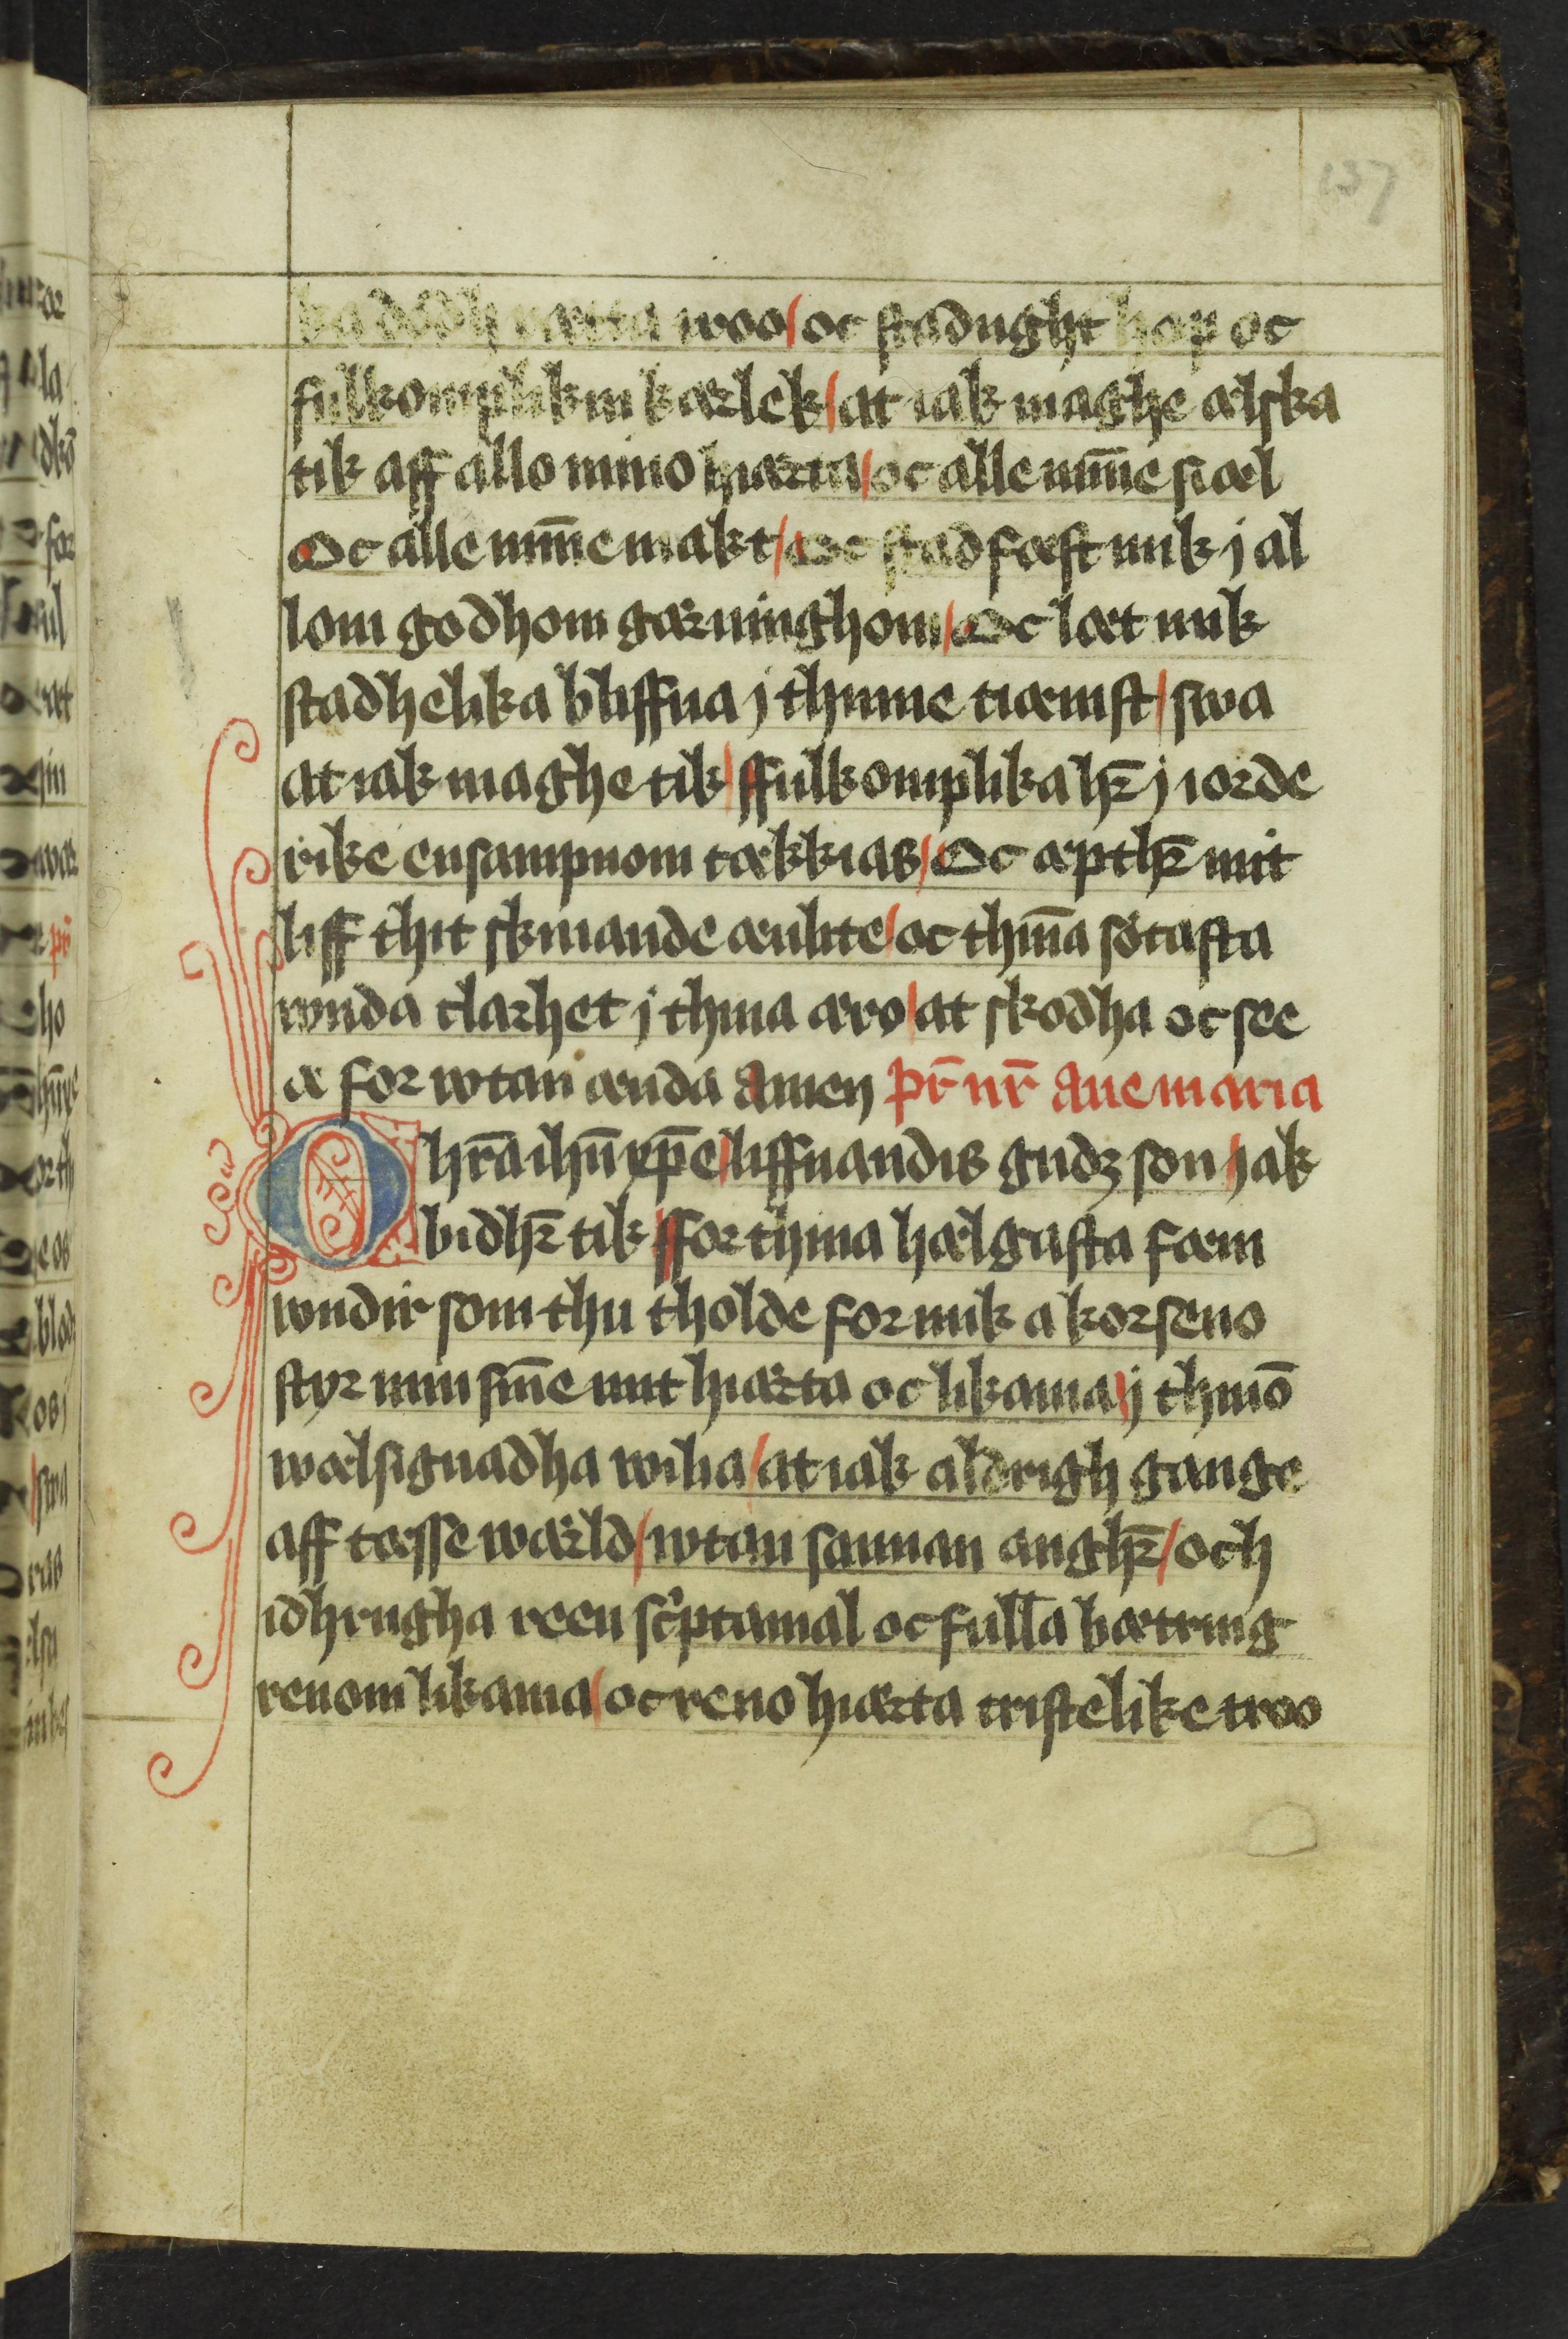 137
ka dödh rætta troo / oc stadught hop oc
fulkomplikin kærlek / at iak maghe ælska
tik aff allo mino hiærta / oc alle mīne siæl
Oc alle mīne makt / Oc stadfæst mik j al
lom godhom gærninghom / Oc læt mik
stadhelika bliffua j thinne tiænist / swa
at iak maghe tik / ffulkomplika hr̄ j iorde
rike ensampnom tækkias / Oc æpthr̄ mit
liff thit skinande ænlite / oc thīna sötasta
wnda clarhet j thina æro / at skodha oc see
æ for wtan ænda Amen pr̄ nr̄ Aue maria
O hr̄a ihū xp̄e / liffuandis gudz son / jak
bidhr̄ tik / ffor thina hælgasta fæm
wndir som thu tholde for mik a korseno
styr min sīne mit hiærta oc likama / j thinō
wælsignadha wilia / at iak aldrigh gange
aff tæsse wærld / wtan sannan anghr̄ / och
idhrugha reen sc̄ptamal oc fulla bætring
renom likama / oc reno hiærta tristelike troo